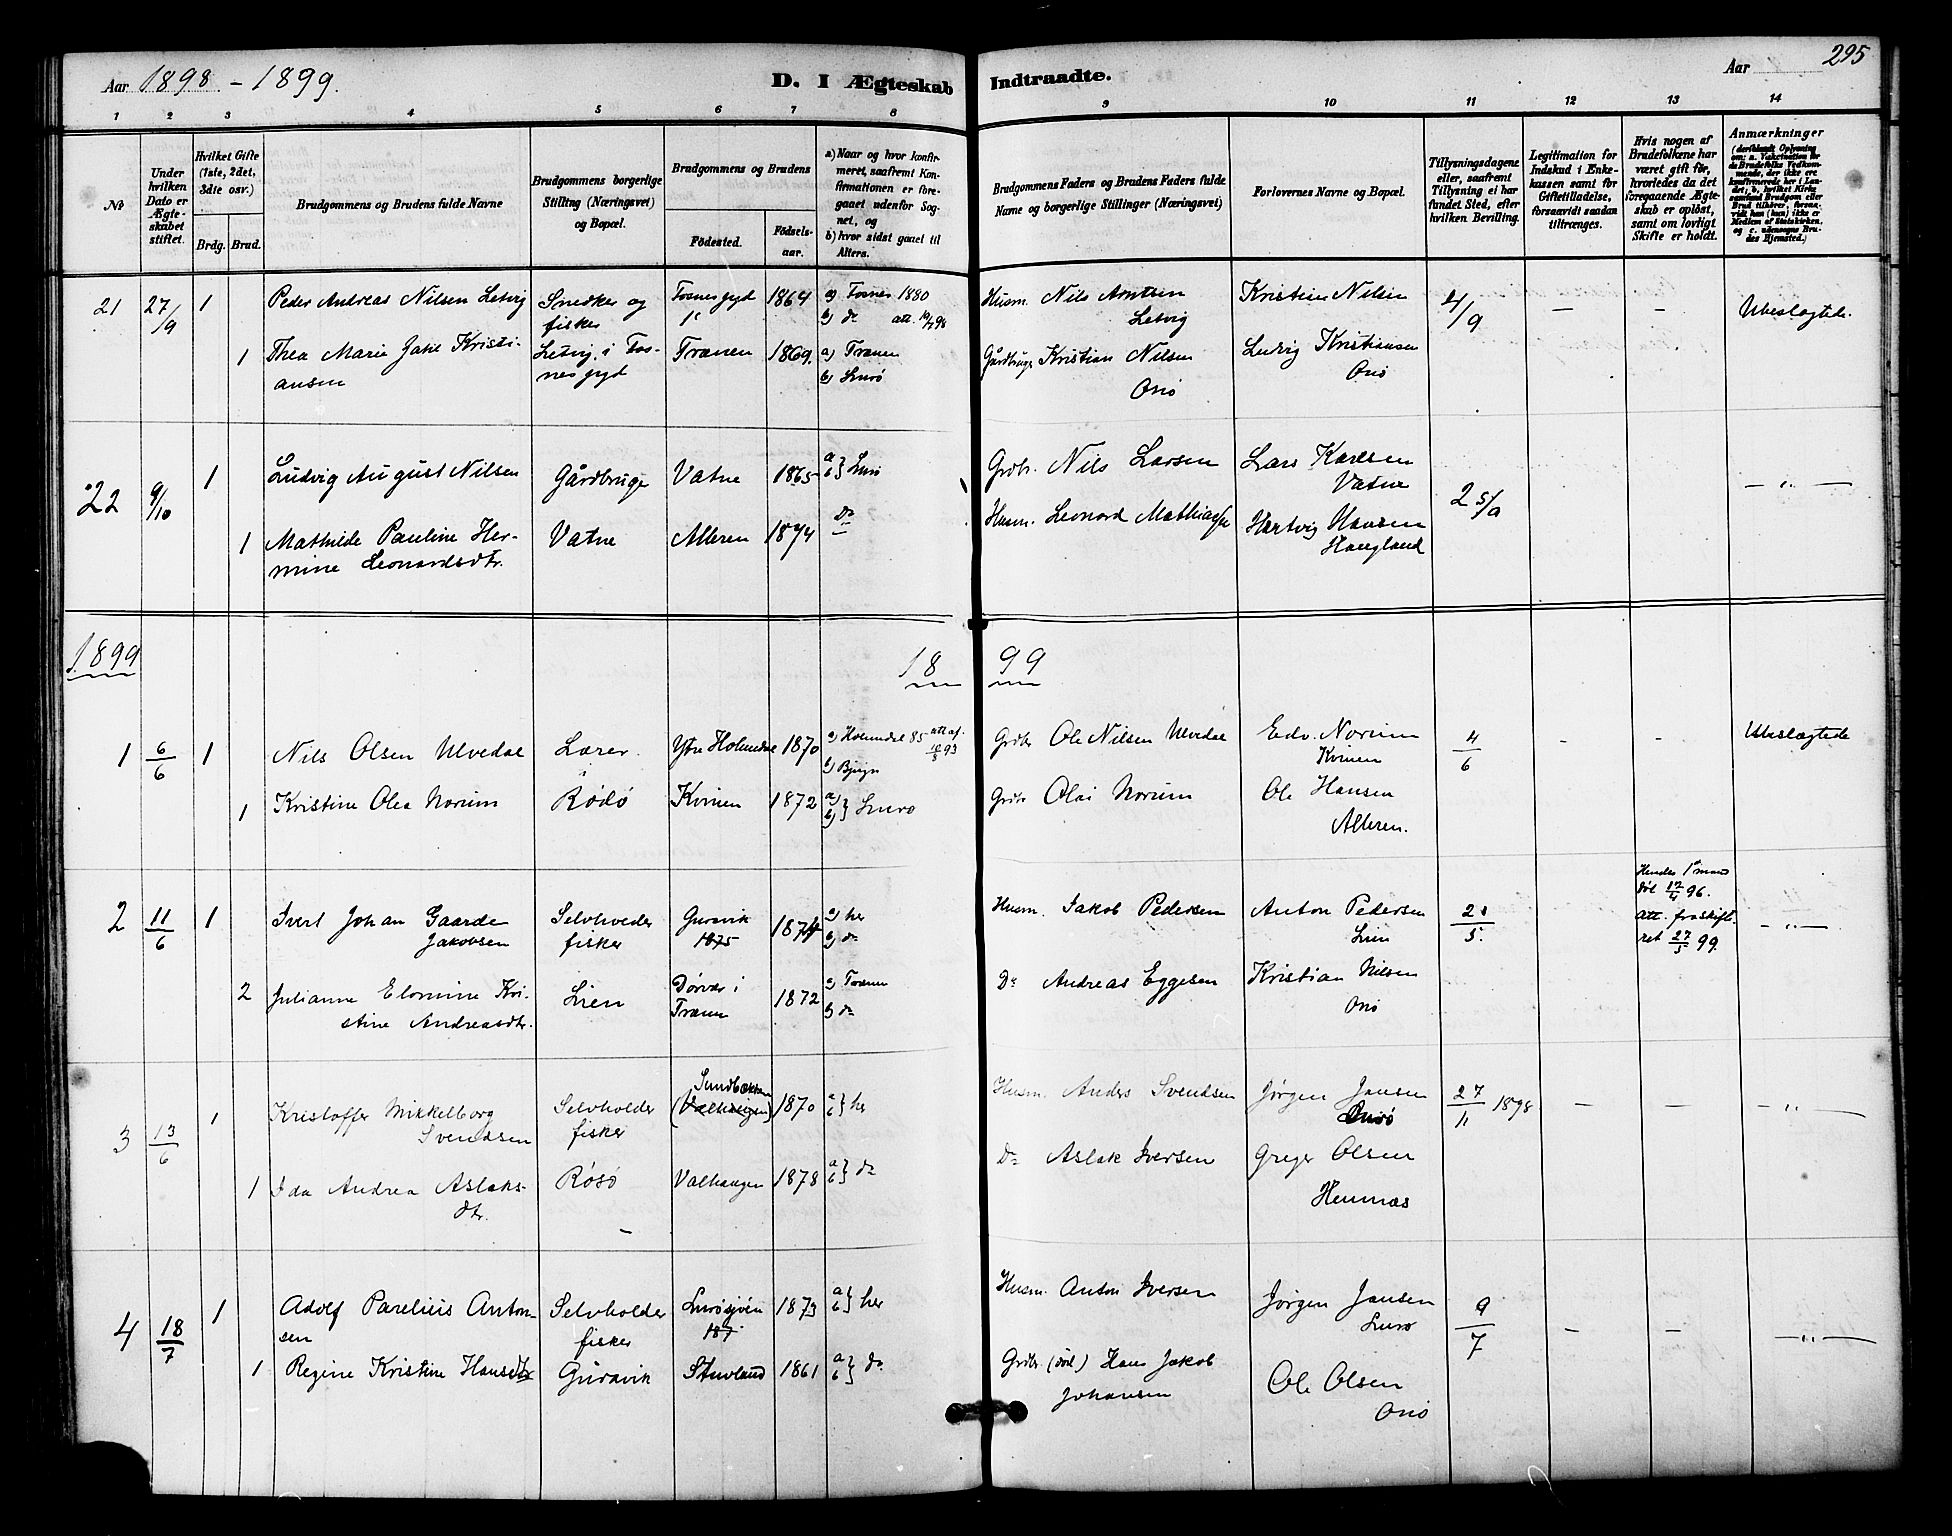 295
Aar 1898 - 1899.
D. I Ægteskab Indtraadte.
Aar
1 2 3 4 5 6 7 8 9 10 11 12 13 14
No
Under hvilken Dato er Ægteskabet stiftet.
Hvilket Gifte (1ste, 2det, 3die osv.)
Brdg. Brud.
Brudgommens og Brudens fulde Navne
Brudgommens borgerlige Stilling (Næringsvei) og Bopæl.
Brudgommens og Brudens
Födested.
Födselsaar.
a) Naar og hvor konfirmeret, saafremt Konfirmationen er foregaaet udenfor Sognet, og
b) hvor sidst gaaet til Alters.
Brudgommens Faders og Brudens Faders fulde Navne og borgerlige Stillinger (Næringsvei)
Forlovernes Navne og Bopæl.
Tillysningsdagene eller, saafremt Tillysning ei har fundet Sted, efter hvilken Bevilling.
Legitimation for Indskud i Enkekassen samt for Giftetilladelse, forsaavidt saadan tiltrænges.
Hvis nogen af Brudefolkene har været gift för, hvorledes da det foregaaende Ægteskab er oplöst, samt om lovligt Skifte er holdt.
Anmærkninger
21 27/9 1 Peder Andreas Nilsen Letvig Snedker og fisker Fosnes gjd 1864 a) Fosnes 1880 b) do att. 19/7 98 Husm. Nils Arntsen Letvig Kristian Nilsen 4/9 — — Ubeslægtede.
1 Thea Marie Jakil Kristiansen Letvig, i Fosnes gjd Trænen 1869. a) Trænen b) Lurö Gårdbruger Kristian Nilsen Onö Ludvig Kristiansen Onö
22 9/10 1 Ludvig August Nilsen Gårdbruger Vatne 1865 a b } Lurö Grdbr. Nils Larsen Lars Karlsen Vatne 25/9 — „ —
1 Mathilde Pauline Hermine Leonardsdtr. Vatne Alteren 1874 do Husm. Leonard Mathiassen Hartvig Hansen Haugland
1899 18 99
1 6/6 1 Nils Olsen Ulvedal Lærer. Ytre Holmedal 1870 a) Holmedal 85 att af. 10/8 93 b) Bjugn Grdbr Ole Nilsen Ulvedal Edv. Norum Kvinen 4/6 - - Ubeslægtede
1 Kristine Olea Norum Rödö Kvinen 1872 a) b) } Lurö Grdbr Olai Norum Ole Hansen Alteren.
2 11/6 1 Ivert Johan Gaarder Jakobsen Selvholder fisker Guravik 1875 1874 a) her b) do Husm. Jakob Pedersen Anton Pedersen Lien 21/5. Hendes 1e mand död 17/4 96. Att. fra skifteret 27/5 99. - „ -
2 Julianne Elonine Kristine Andreasdtr. Lien Dörvær i Trænen 1872 a) Trænen b) do Do Andreas Eggesen Kristian Nilsen Onö
3 13/6 1 Kristoffer Mikkelborg Svendsen Selvholder fisker Sundbakken (Valhaugen) 1870 a b } her Husm. Anders Svendsen Jörgen Jansen Lurö 27/11 1898 — — — „ —
1 Ida Andrea Aslaksdtr. Rösö Valhaugen 1878 a b } do Do Aslak Iversen Greger Olsen Hemnæs
4 18/7 1 Adolf Parelius Antonsen Selvholder fisker Lurösjöen 187 1873 a b } her Husm. Anton Iversen Jörgen Jansen Lurö 9/7 — — — „ —
1 Regine Kristine Hansdtr Guravik Stuvland 1861 a b } do Grdbr (död) Hans Jakob Johansen Ole Olsen Onö